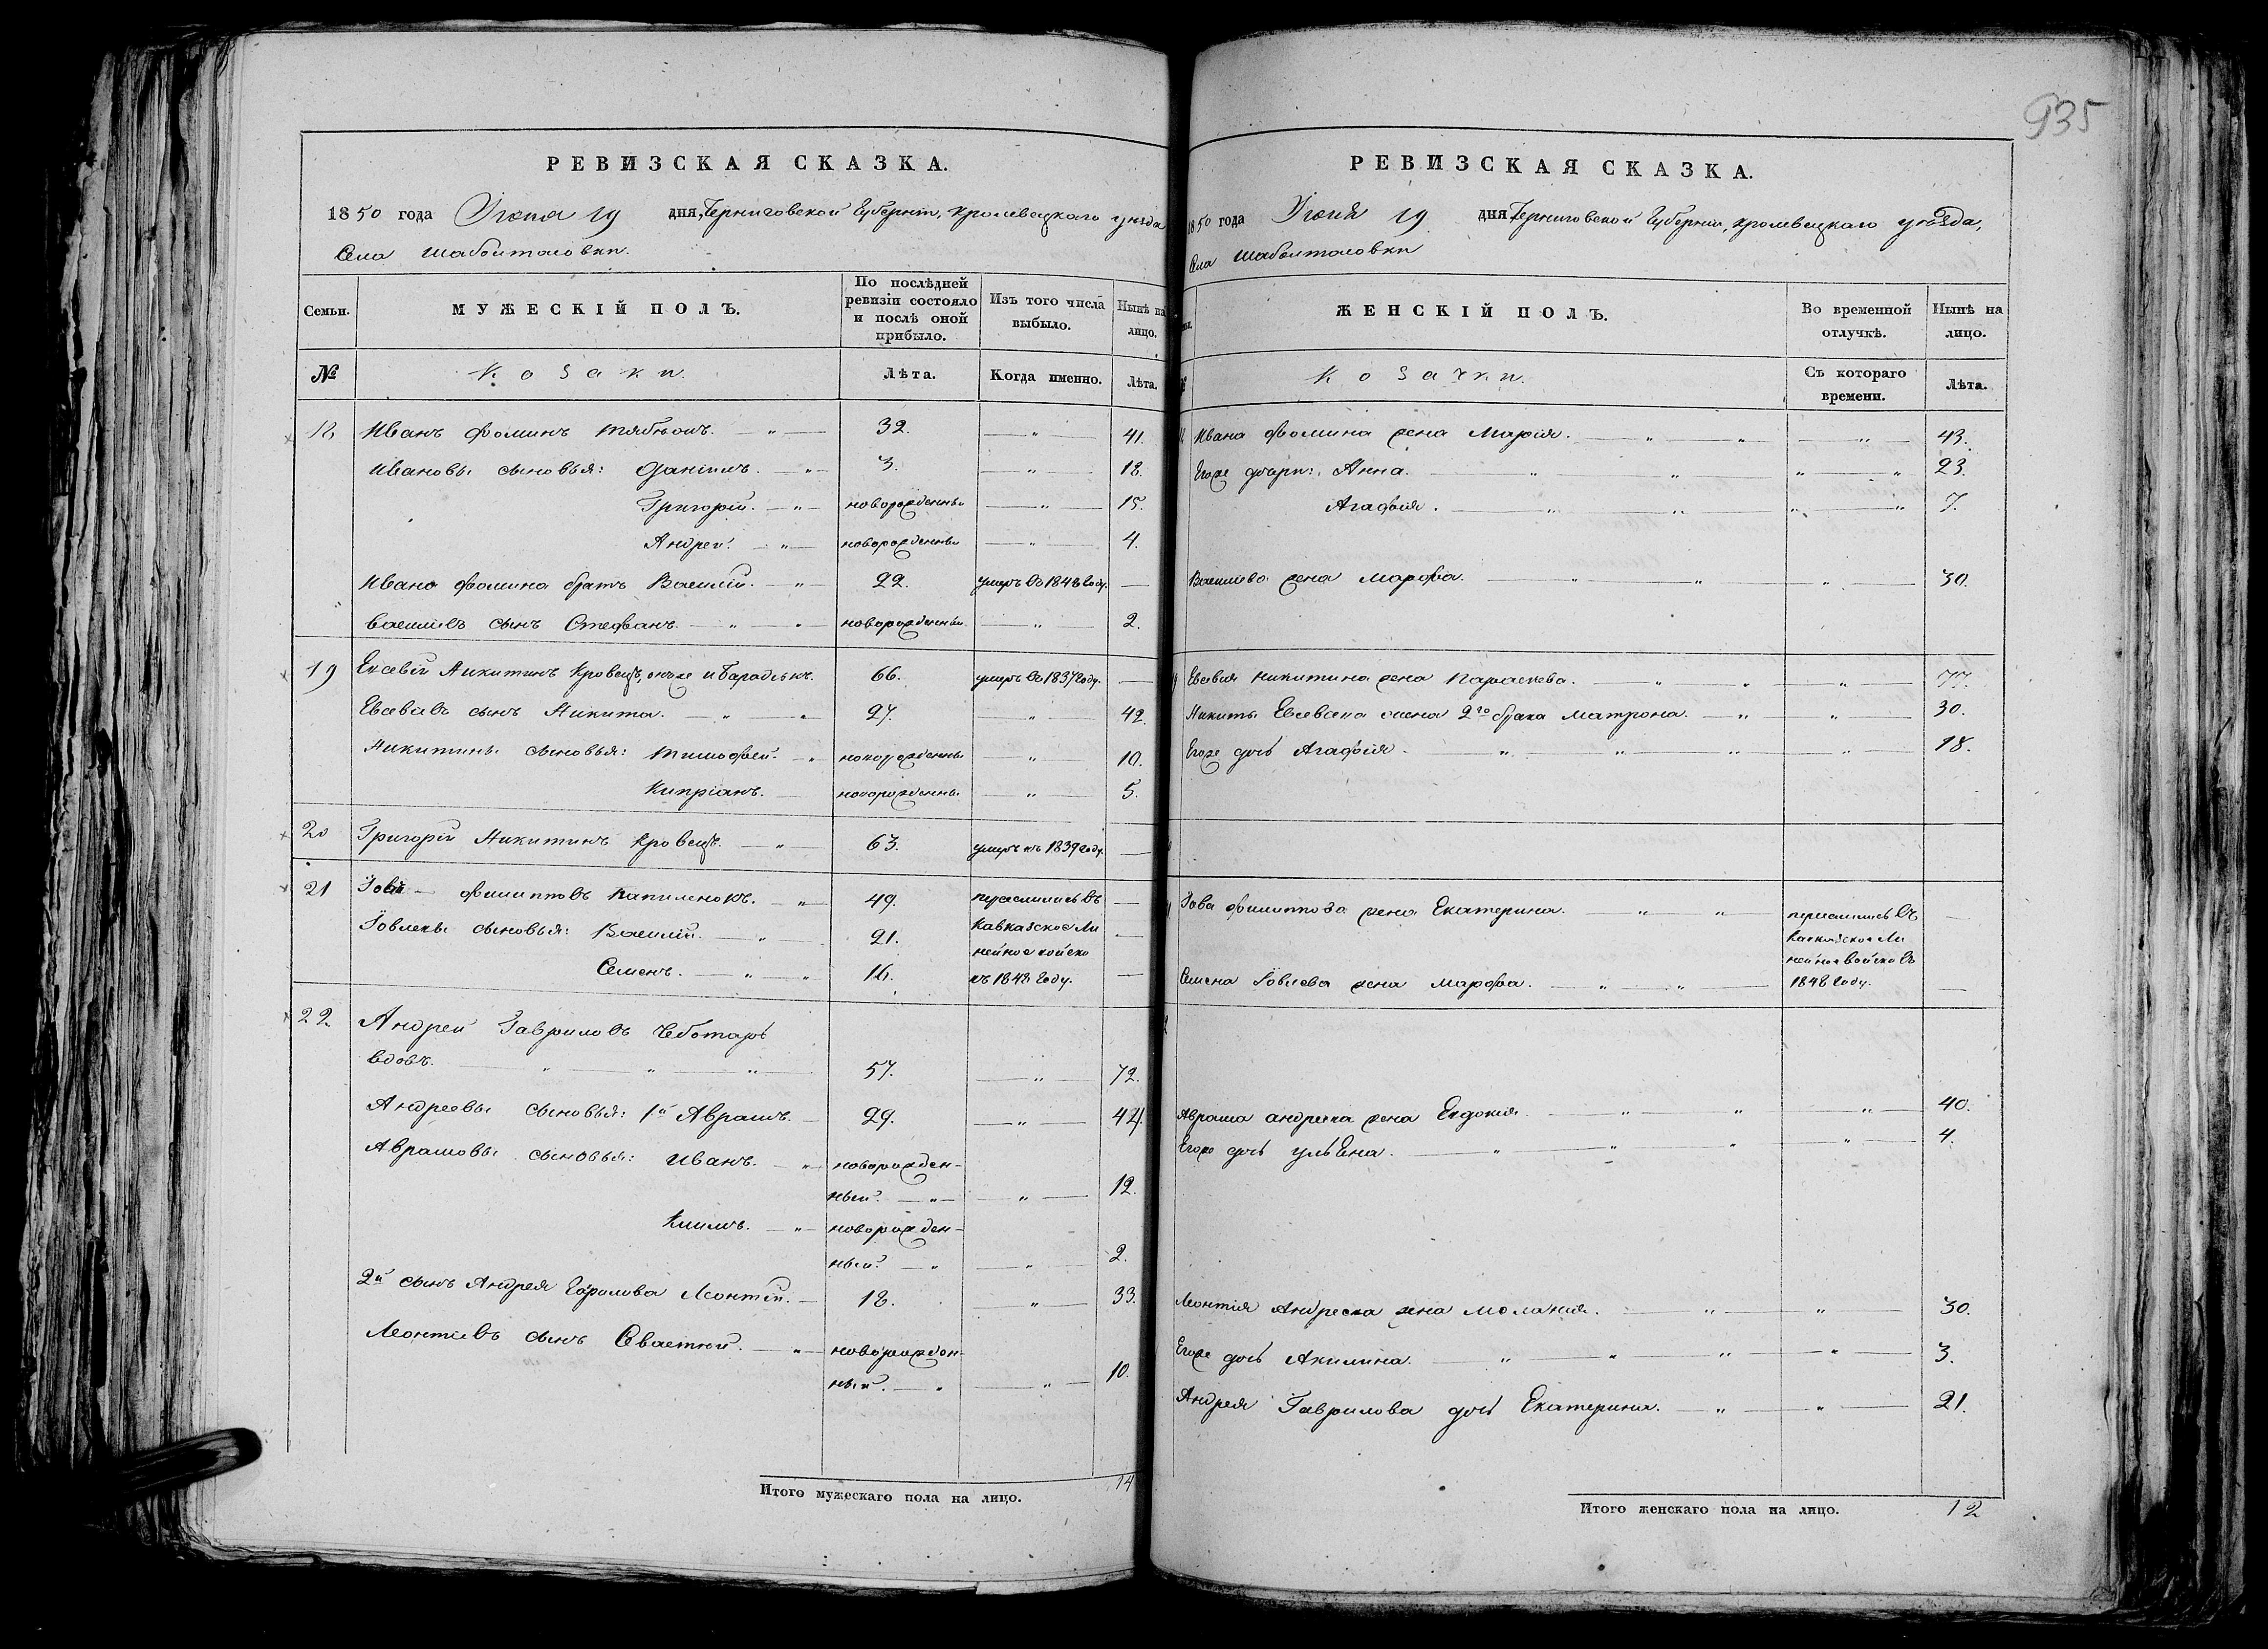 935
РЕВИЗСКАЯ СКАЗКА.
1850 года Іюня 19 дня, Черниговской Губерніи, Кролевецкаго уѣзда
Села Шаболтасовки.
Семьи.
МУЖЕСКІЙ ПОЛЪ.
По послѣдней ревизіи состояло и послѣ оной прибыло.
Изъ того числа выбыло.
Нынѣ на лицо.
№
Козаки.
Лѣта.
Когда именно.
Лѣта.
18 Иванъ Фоминъ 32. 41.
Ивановы сыновья: Даніилъ. 3. 18.
Григорій. новорожденны 15.
Андрей. новорожденны 4.
Ивана Фомина братъ Василій. 22. умеръ въ 1848 году.
Василіевъ сынъ Стефанъ. новорожденны 2.
19 Евсевій Никитинъ Кровецъ, онже и 66. умеръ въ 1837 году.
Евсевіевъ сынъ Никита. 27. 42.
Никитины сыновья: Тимофей. новорожденны 10.
Кипріанъ. новорожденны 5.
20 Григорій Никитинъ Кровецъ. 63. умеръ въ 1839 году.
21 Іовъ Филипповъ Капиленокъ. 49. переселились въ
Іовлевы сыновья: Василій. 21. Кавказское Ли
нейное войско
Семенъ. 16. въ 1848 году.
22 Андрей Гавриловъ Чеботарь
вдовъ. 57. 72.
Андреевы сыновья: 1й Аврамъ. 29. 44.
Аврамовы сыновья: Иванъ. новорожден-
ный. 12.
Климъ. новорожден-
ный. 2.
2й сынъ Андрея Гаврилова Леонтій. 18. 33.
Леонтіевъ сынъ Савастій. новорожден-
ный. 10.
Итого мужескаго пола на лицо. 14
РЕВИЗСКАЯ СКАЗКА.
1850 года Іюня 19 дня Черниговской Губерніи, Кролевецкаго уѣзда,
Села Шаболтасовки
ЖЕНСКІЙ ПОЛЪ.
Во временной отлучкѣ.
Нынѣ на лицо.
Козачки.
Съ котораго времени.
Лѣта.
Ивана Фомина жена Марія. 43.
Егоже дочери: Анна. 23.
Агафія. 7.
Василіева жена Марфа. 30.
Евсевія Никитина жена Параскева. 77.
Никиты Евсевіева жена 2го брака Матрона. 30.
Егоже дочь Агафія. 18.
Іова Филиппова жена Екатерина. переселились въ
Кавказское Ли
нейное войско въ
Семена Іовлева жена Марфа. 1848 году.
Аврама Андреева жена Евдокія. 40.
Егоже дочь Ульена. 4.
Леонтія Андреева жена Меланія. 30.
Егоже дочь Акилина. 3.
Андрея Гаврилова дочь Екатерина. 21.
Итого женскаго пола на лицо. 12